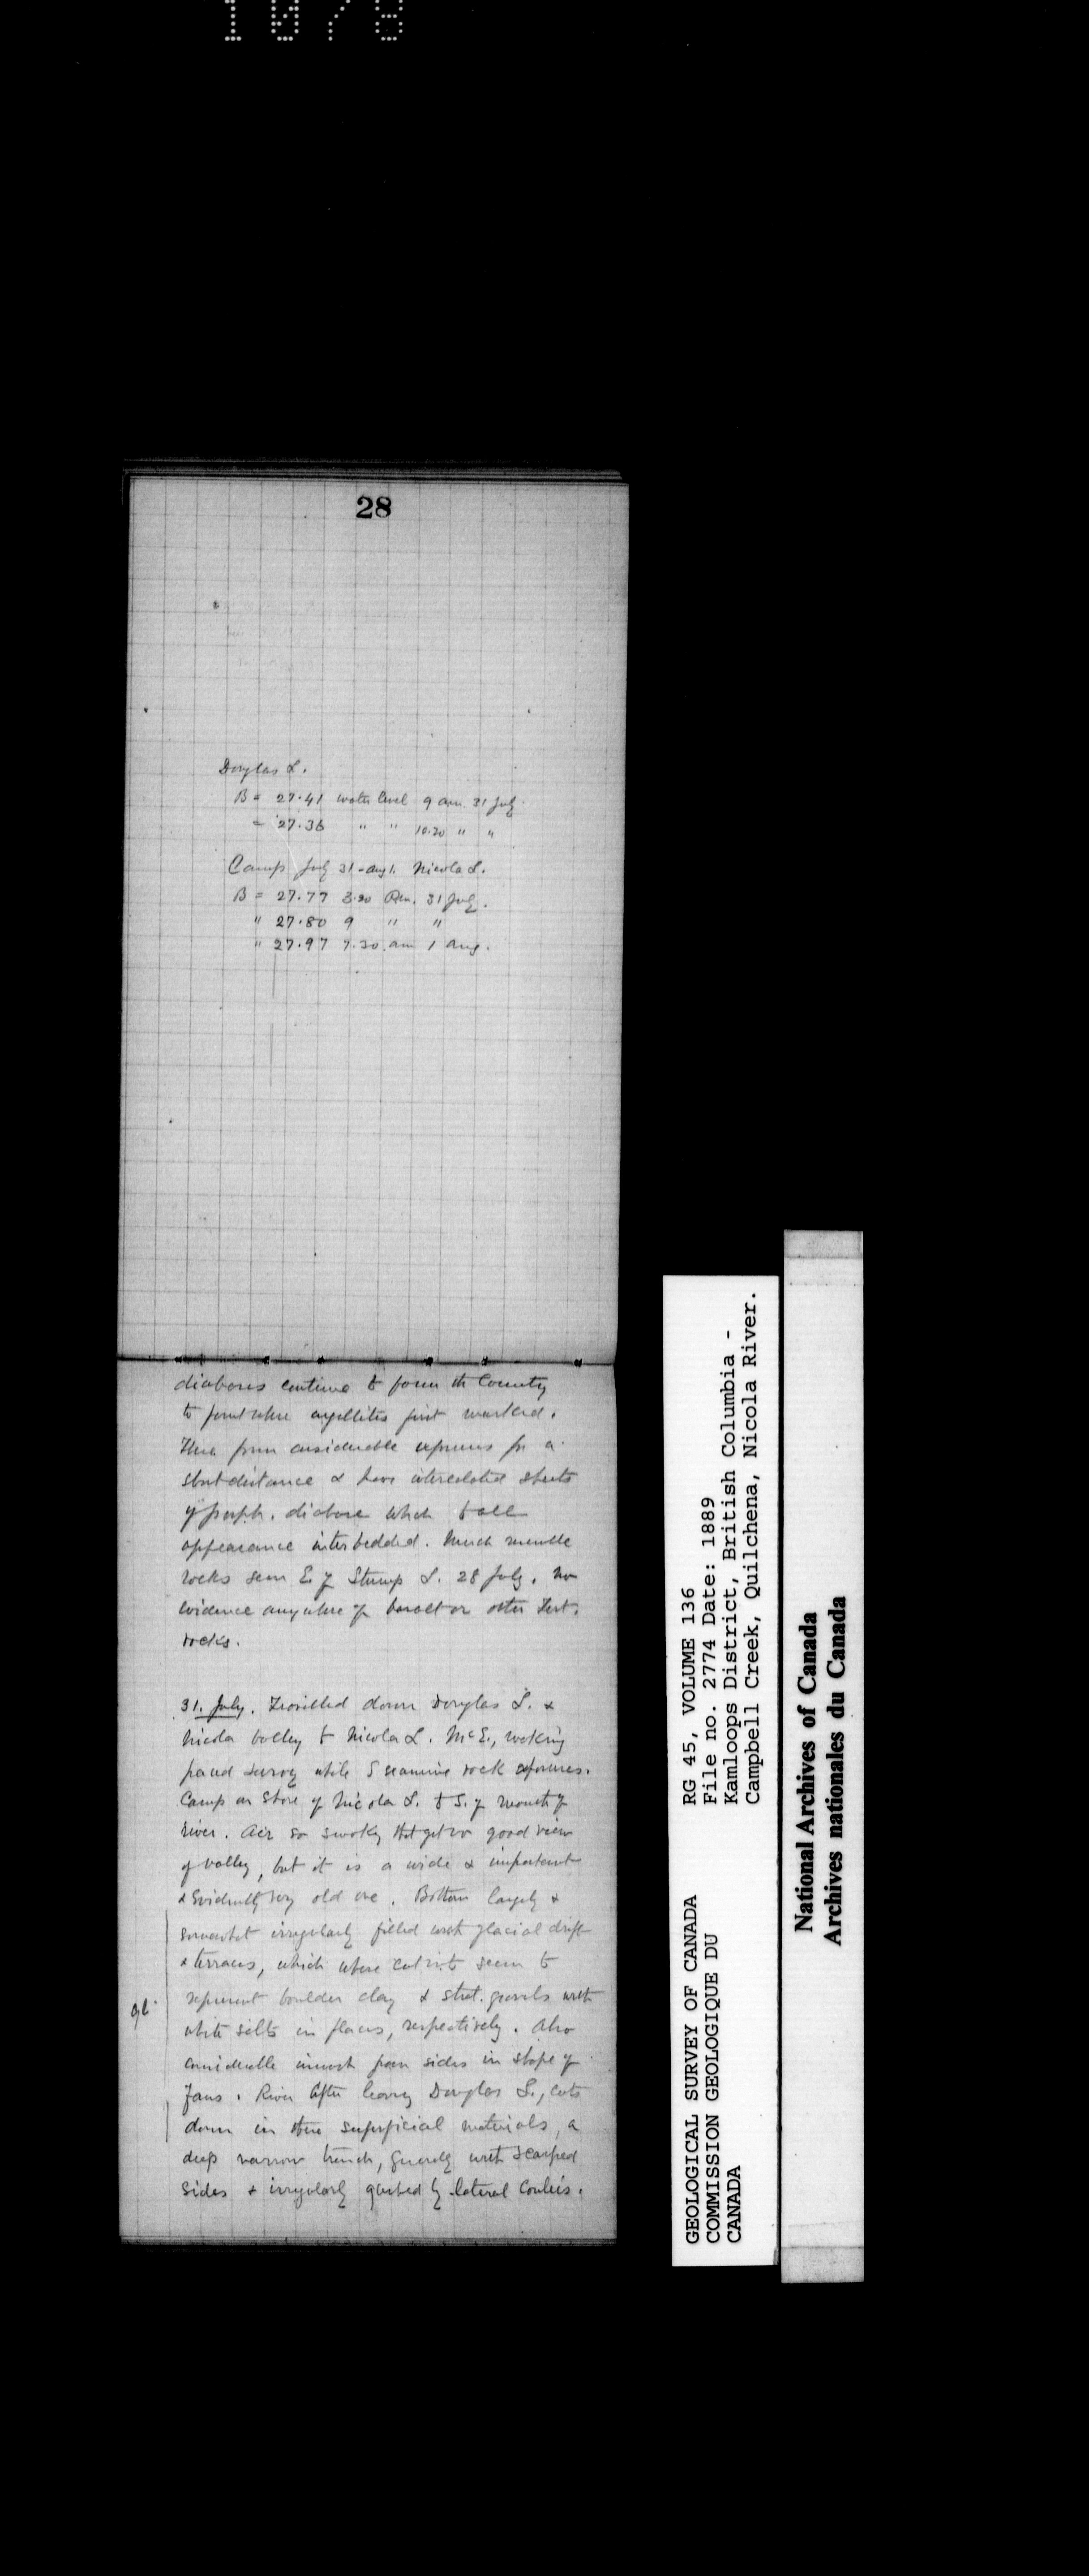 1078
28
Douglas L.
B = 27.41 water level 9 am. 31 July.
= 27.36 " " 10.30 " "
Camp July 31 - Aug 1. Nicola L.
B = 27.77 3.30 Pm. 31 July.
" 27.80 9 " "
" 27.97 7.30 am 1 Aug.
diabases continue to form the country
to point where argillites first marked.
These form considerable exposures for a
short distance & have intercalated sheets
of porph. diabase which to all
appearance interbedded. Much resemble
rocks seen E. of Stump L. 28 July. No
evidence anywhere of basalt or other Tert.
rocks.
31. July. Travelled down Douglas L. &
Nicola Valley to Nicola L. McE., making
paced survey while I examine rock exposures.
Camp on shore of Nicola L. to S. of mouth of
river. Air so smoky that get no good view
of valley, but it is a wide & important
& evidently very old one. Bottom largely &
somewhat irregularly filled with glacial drift
& terraces, which where cut into seem to
represent boulder clay & strat. gravels with
white silts in places, respectively. Also
gl.
considerable inwash from sides in shape of
fans. River after leaving Douglas L., cuts
down in these superficial materials, a
deep narrow trench, generally with scarped
sides & irregularly gashed by lateral coulées.
GEOLOGICAL SURVEY OF CANADA
COMMISSION GEOLOGIQUE DU
CANADA
RG 45, VOLUME 136
File no. 2774 Date: 1889
Kamloops District, British Columbia -
Campbell Creek, Quilchena, Nicola River.
National Archives of Canada
Archives nationales du Canada